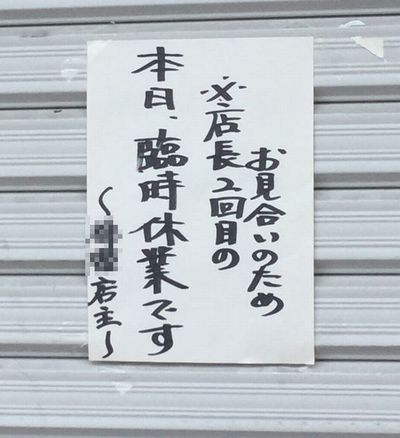 本日、臨時休業です
※店長2回目の
お見合いのため
〜店主〜